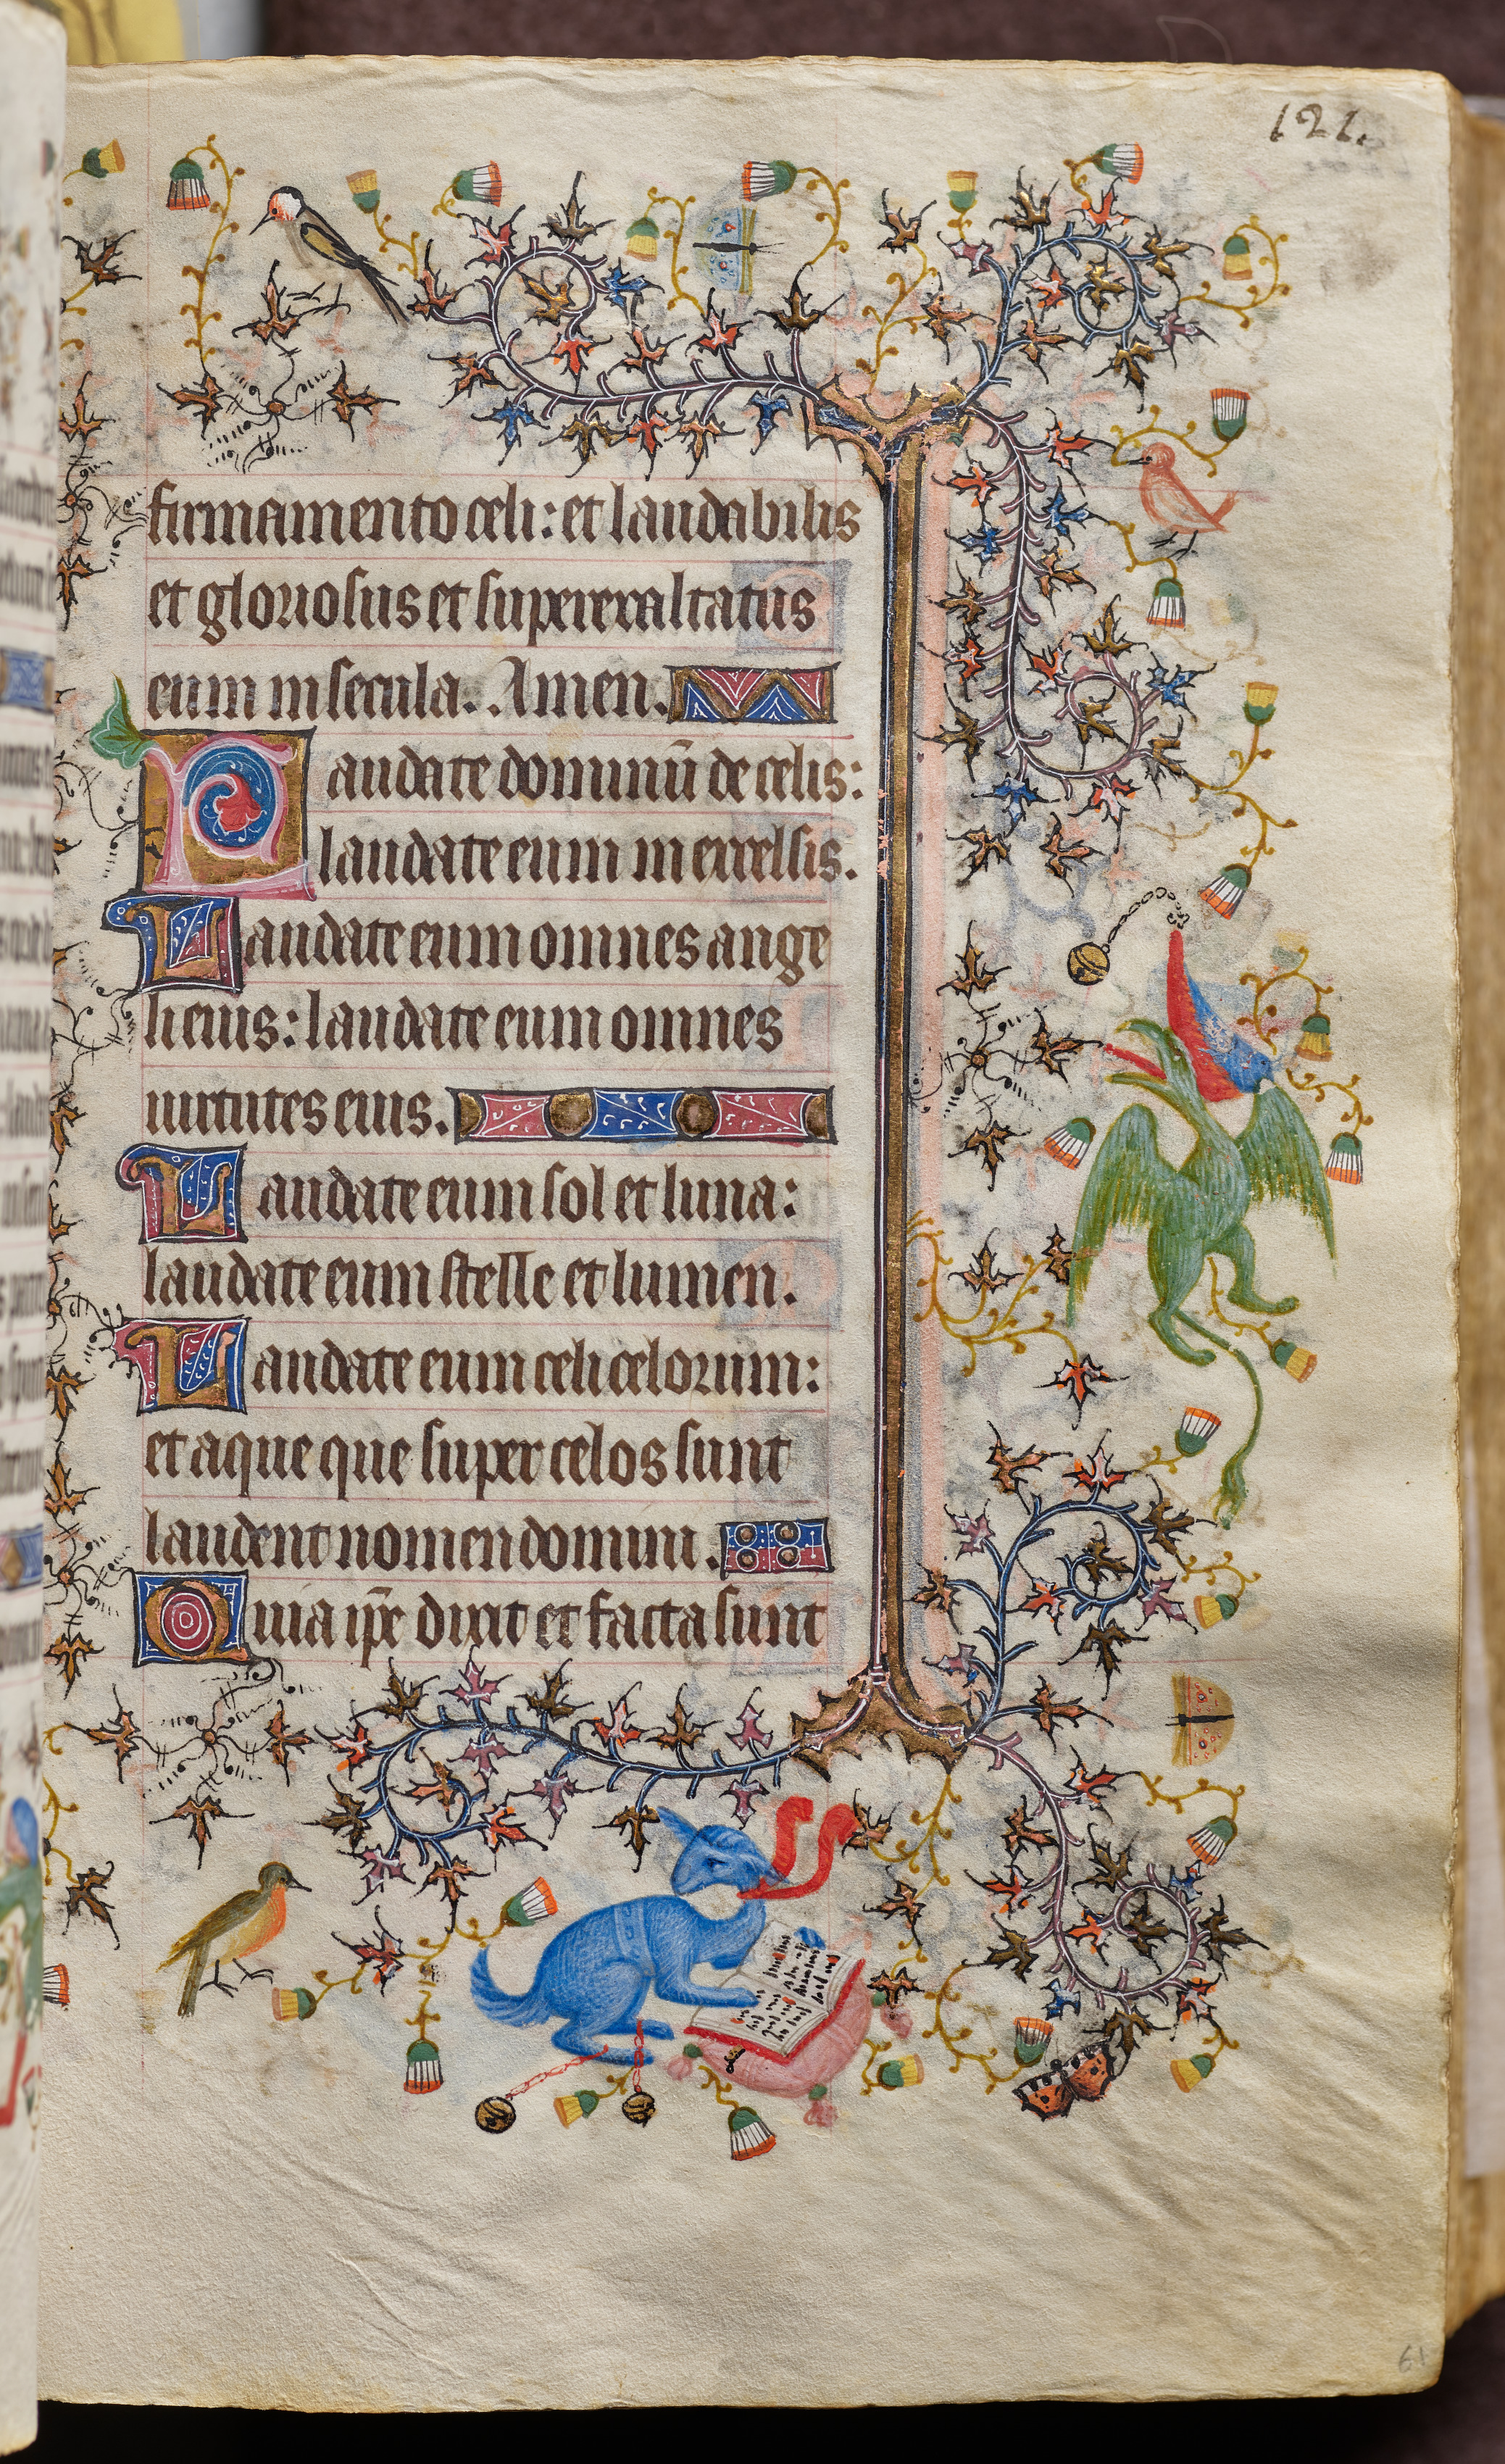 121.
firmamento celi: et laudabilis
et gloriosus et superexaltatus
eum in secula. Amen.
Laudate dominū de celis:
laudate eum in excelsis.
Laudate eum omnes ange
li eius: laudate eum omnes
uirtutes eius.
Laudate eum sol et luna:
laudate eum stelle et lumen.
Laudate eum celi celorum:
et aque que super celos sunt
laudent nomen domini.
Quia ip̄e dixit et facta sunt
61